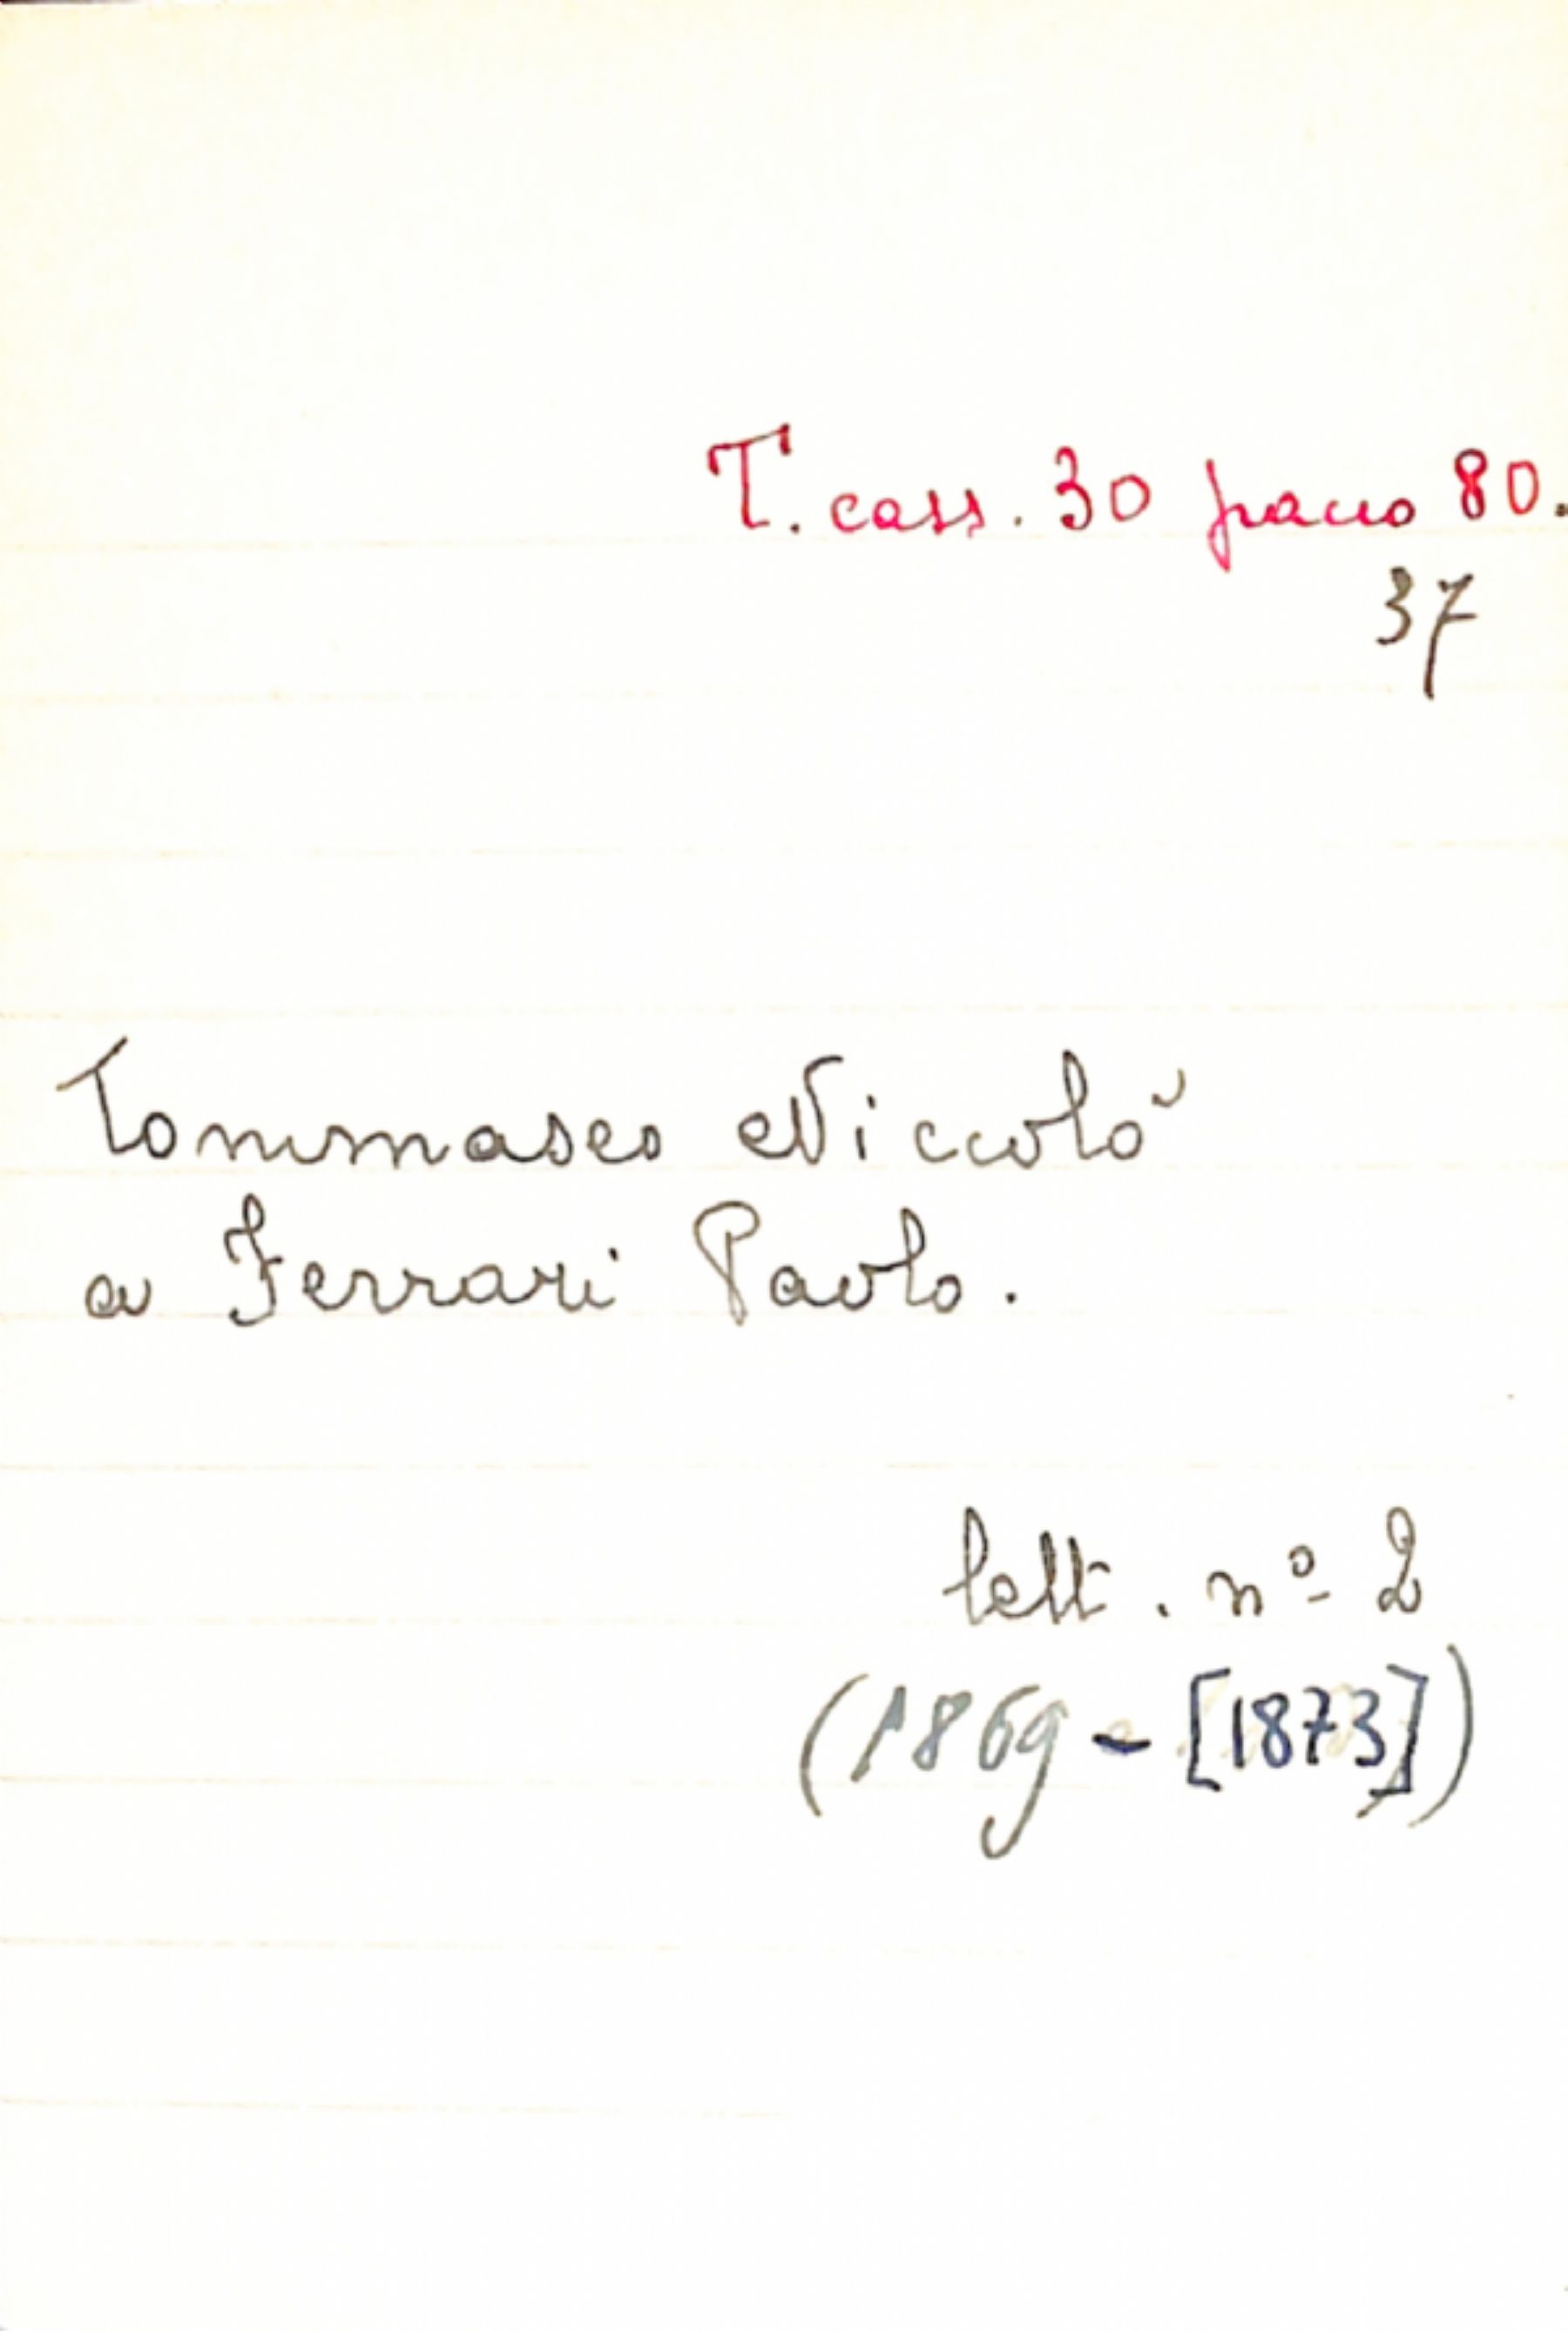 T. cass. 30 pacco 80.
37
Tommaseo Niccolò
a Ferrari Paolo.
lett. nº 2
(1869 - [1873])